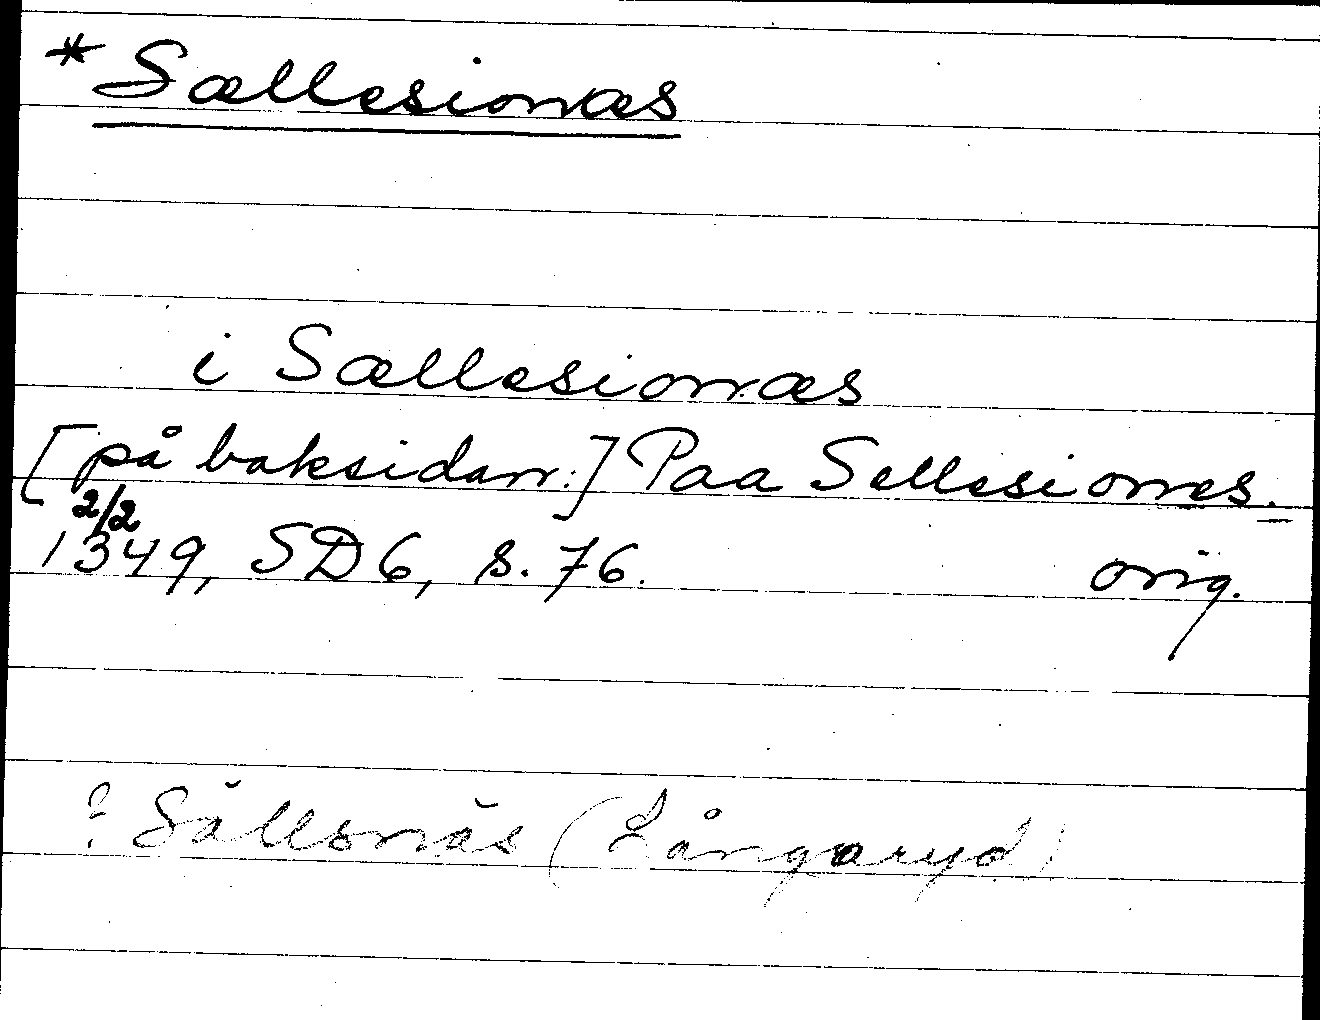 *Sællesionæs
i Sællesionæs
[på baksidan:] Paa Sellesiones.
2/2
1349, SD6, s. 76. orig.
? Sällsnäs (Långaryd)